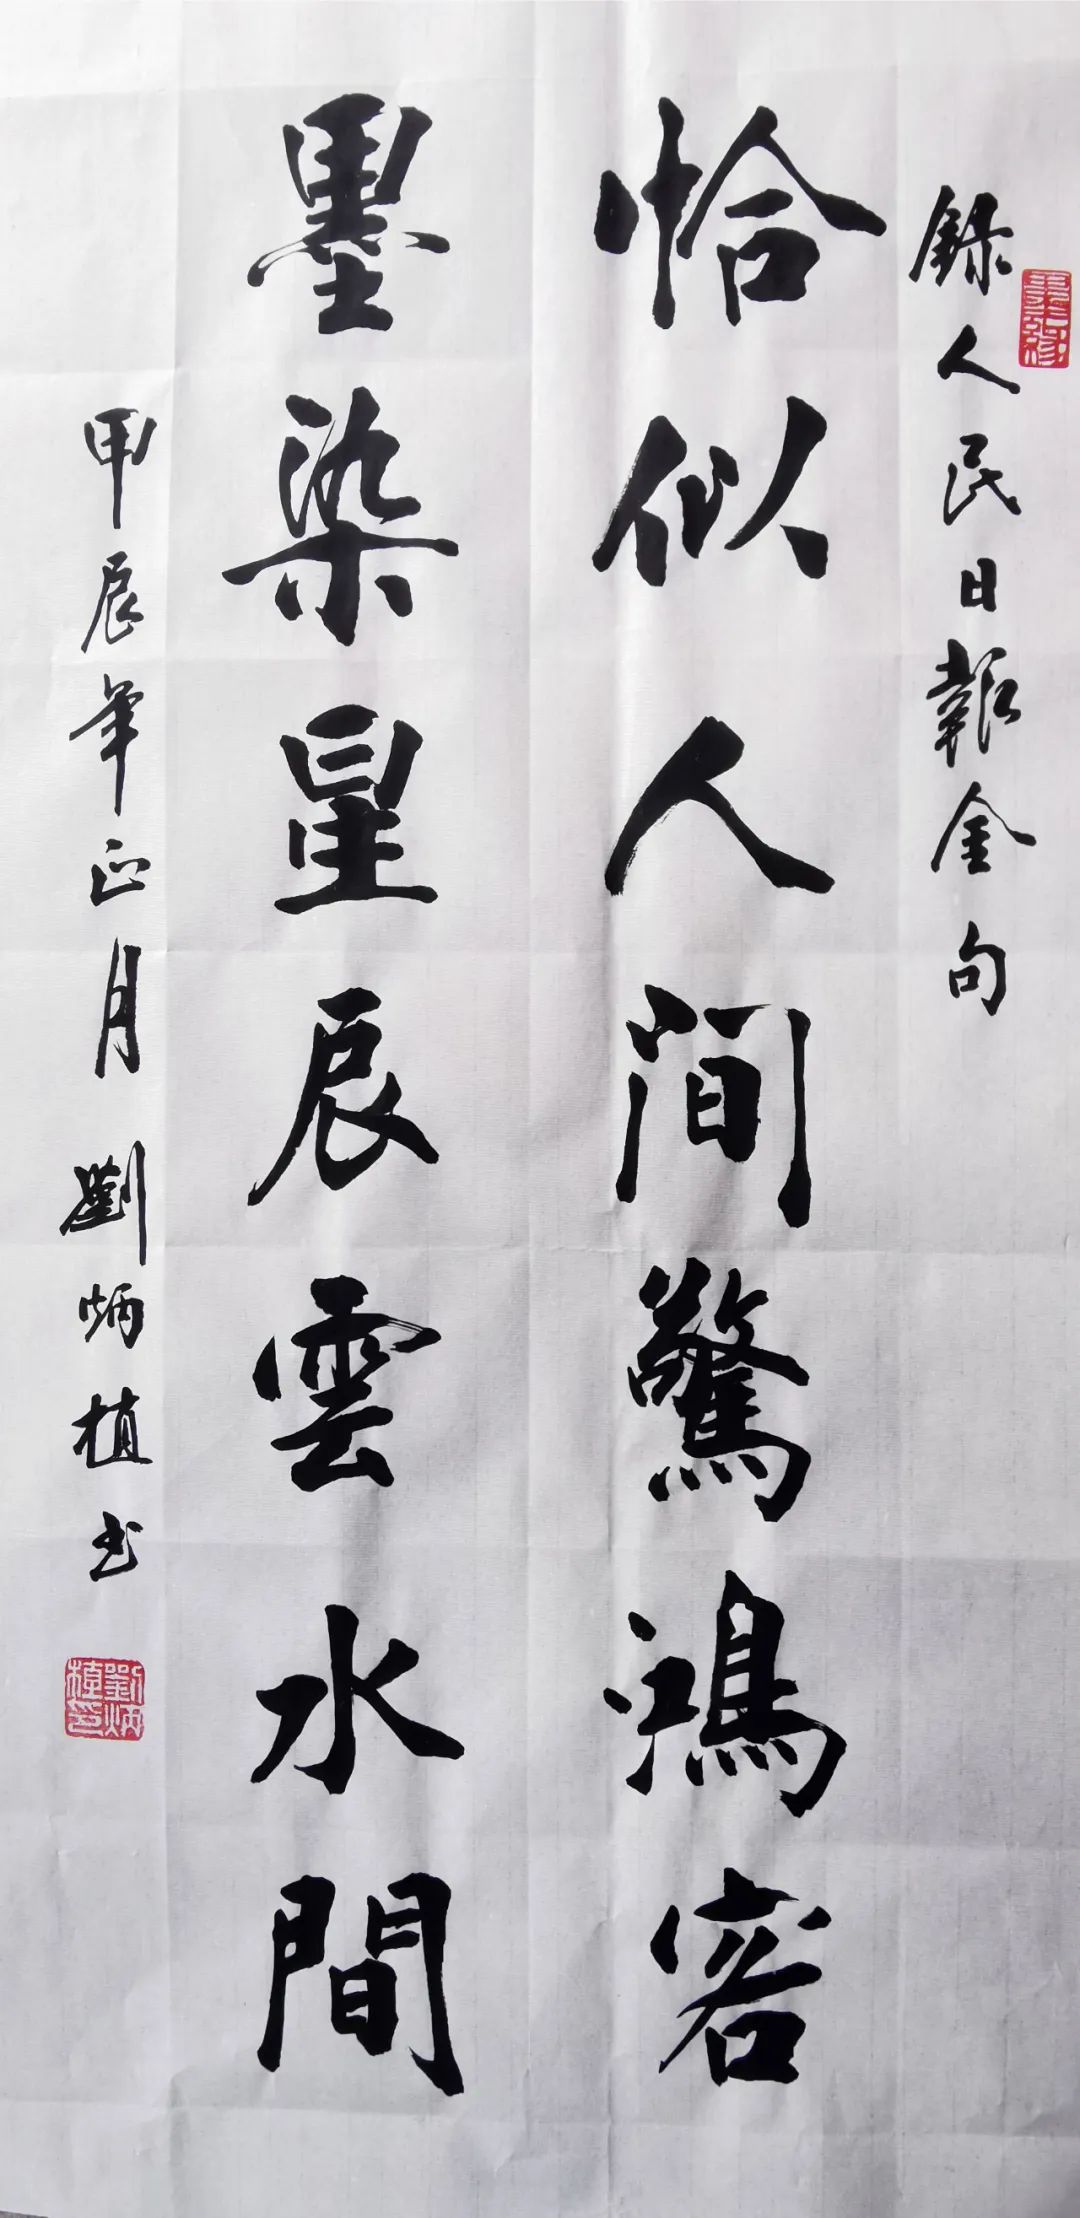 錄人民日報金句
恰似人间驚鴻客
墨染星辰雲水間
甲辰年正月 劉炳植书
劉炳植印